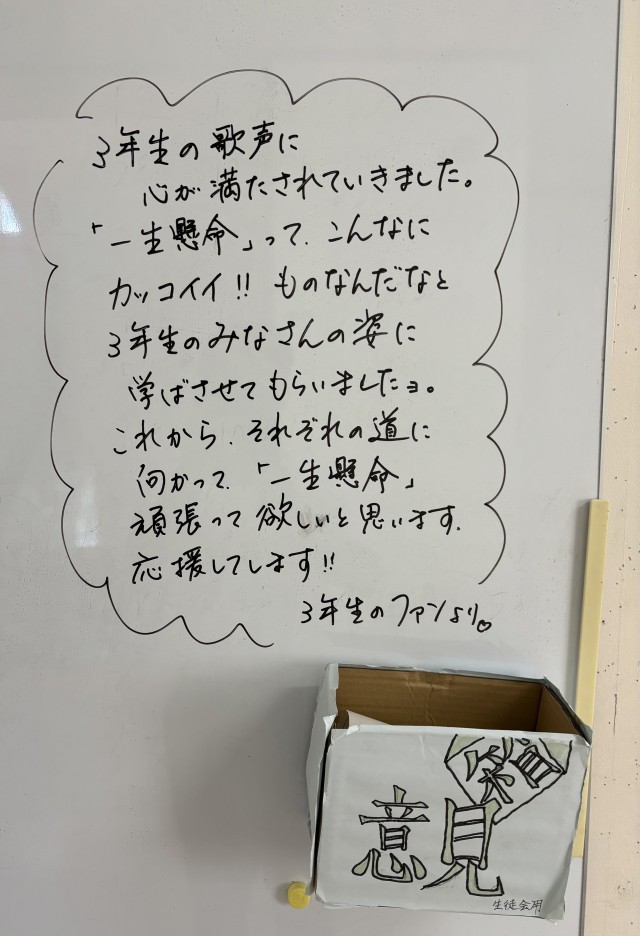 3年生の歌声に
心が満たされていきました。
「一生懸命」って、こんなに
カッコイイ!! ものなんだなと
3年生のみなさんの姿に
学ばさせてもらいましたョ。
これから、それぞれの道に
向かって、「一生懸命」
頑張って欲しいと思います。
応援してします!!
3年生のファンより。
意見
生徒会用